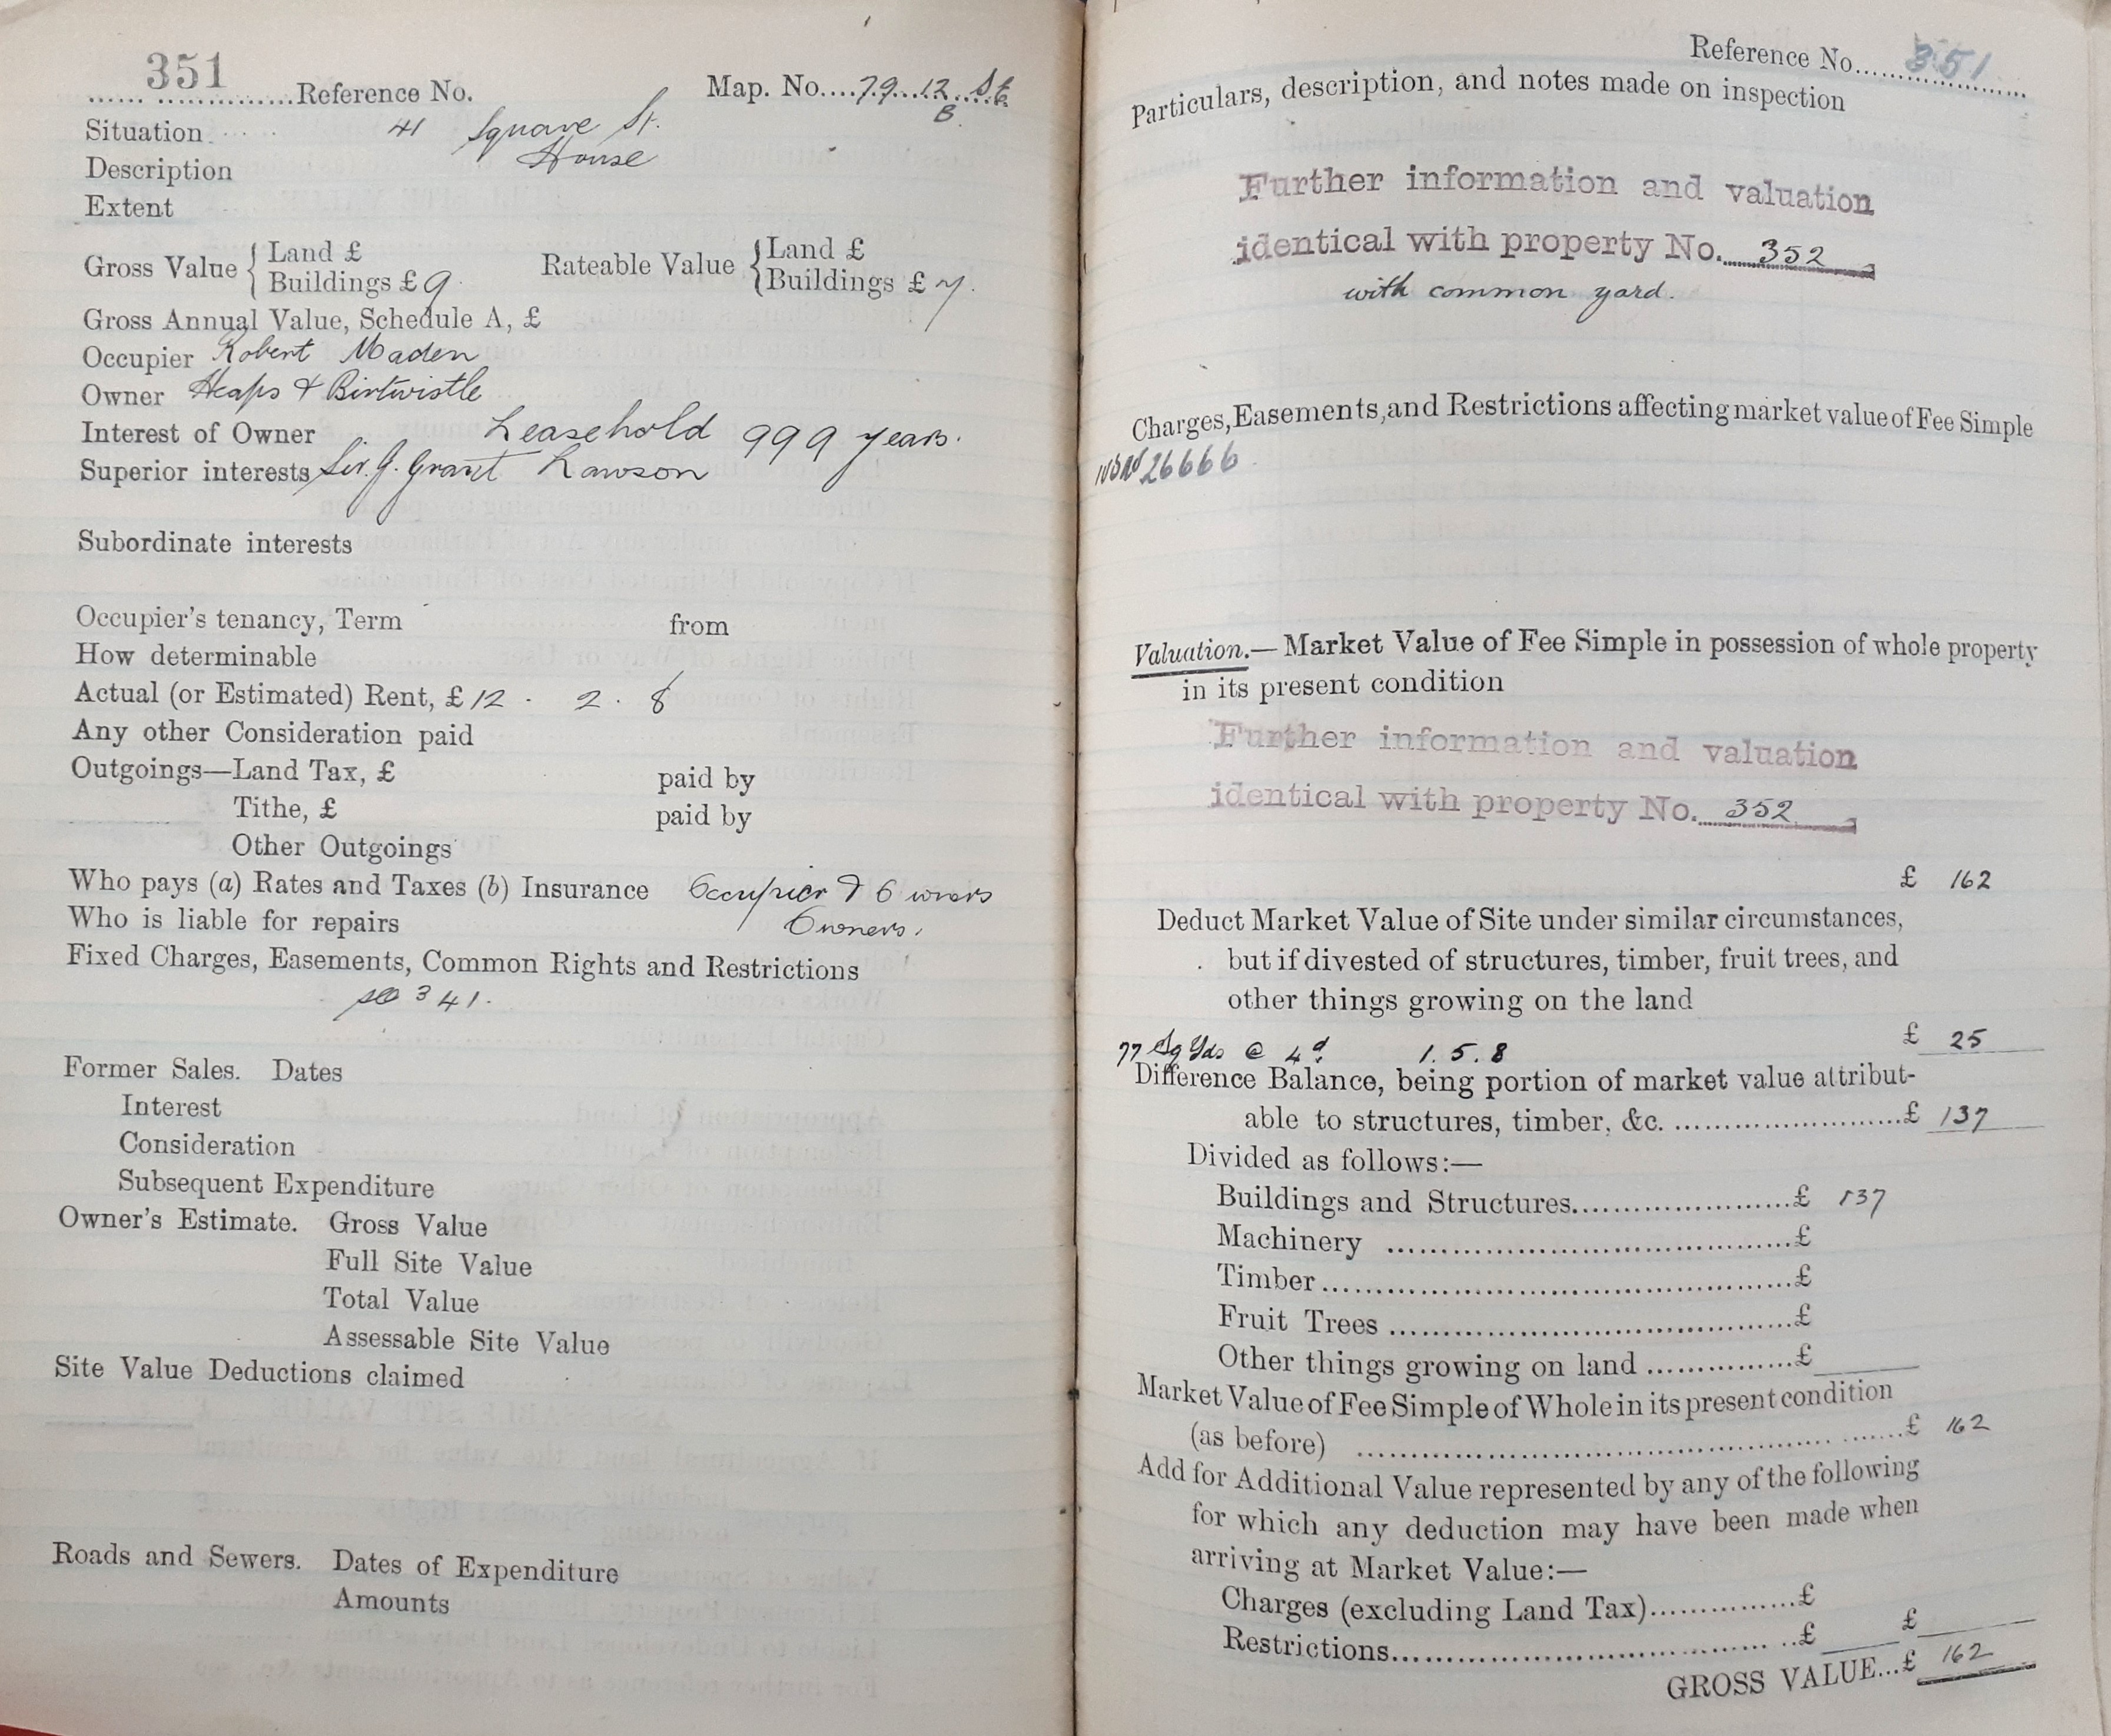 351
Reference No. Map. No....79..12..St.
B.
Situation 41 Square St.
Description House
Extent
Gross Value { Land £ Rateable Value { Land £
Buildings £ 9 Buildings £ 7.
Gross Annual Value, Schedule A, £
Occupier Robert Maden
Owner Heaps & Birtwistle
Interest of Owner Leasehold 999 years.
Superior interests Sir. J. Grant Lawson
Subordinate interests
Occupier's tenancy, Term from
How determinable
Actual (or Estimated) Rent, £ 12 . 2 . 8
Any other Consideration paid
Outgoings—Land Tax, £ paid by
Tithe, £ paid by
Other Outgoings
Who pays (a) Rates and Taxes (b) Insurance Occupier & Owners
Who is liable for repairs Owners.
Fixed Charges, Easements, Common Rights and Restrictions
see 341.
Former Sales. Dates
Interest
Consideration
Subsequent Expenditure
Owner's Estimate. Gross Value
Full Site Value
Total Value
Assessable Site Value
Site Value Deductions claimed
Roads and Sewers. Dates of Expenditure
Amounts
Reference No. 351
Particulars, description, and notes made on inspection
Further information and valuation
identical with property No. 352
with common yard.
Charges, Easements, and Restrictions affecting market value of Fee Simple
26666
Valuation.— Market Value of Fee Simple in possession of whole property
in its present condition
Further information and valuation
identical with property No. 352
£ 162
Deduct Market Value of Site under similar circumstances,
but if divested of structures, timber, fruit trees, and
other things growing on the land
£ 25
77 Sq Yds @ 4d 1. 5. 8
Difference Balance, being portion of market value attribut-
able to structures, timber, &c. £ 137
Divided as follows:—
Buildings and Structures £ 137
Machinery £
Timber £
Fruit Trees £
Other things growing on land £
Market Value of Fee Simple of Whole in its present condition
(as before) £ 162
Add for Additional Value represented by any of the following
for which any deduction may have been made when
arriving at Market Value:—
Charges (excluding Land Tax) £
Restrictions £ £
GROSS VALUE...£ 162